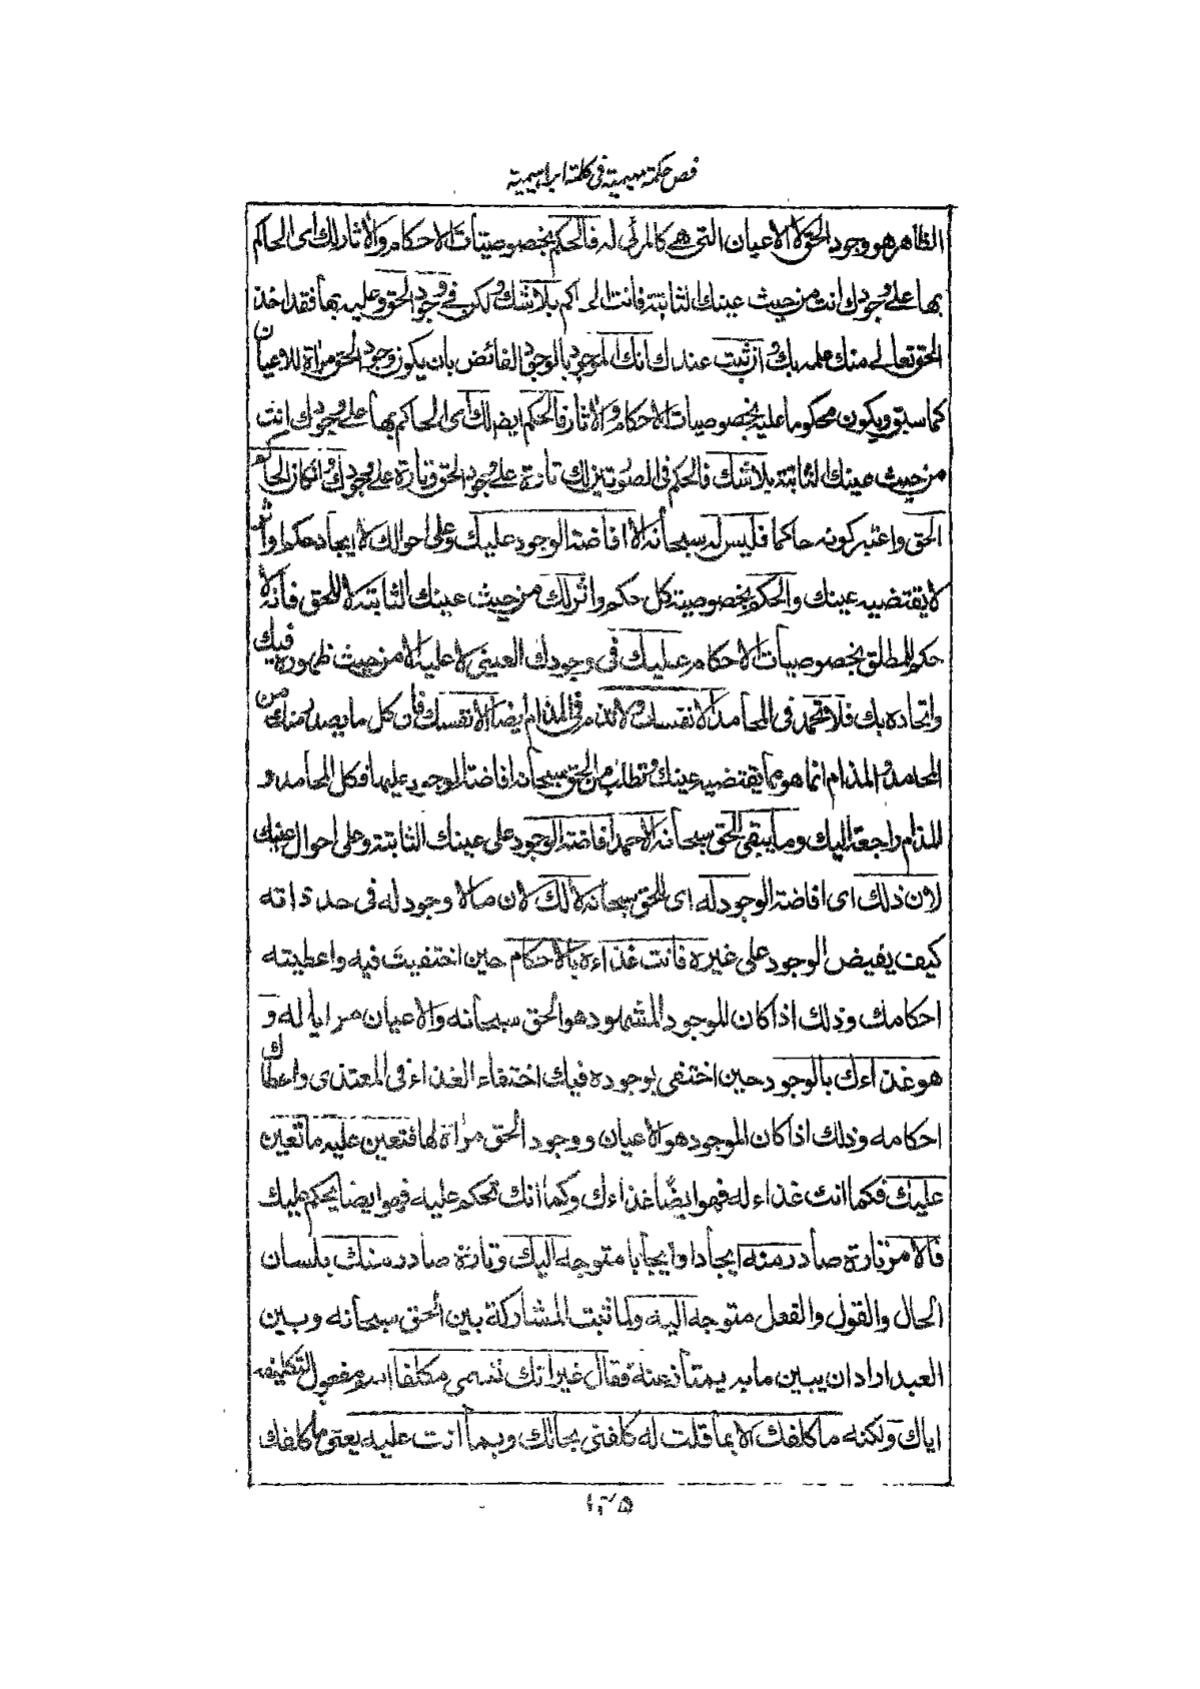 فص حكمة مهيمية في كلمة ابراهيمية
الظاهر هو وجود الحق لا الاعيان التي هي كالمرائي له فالحكم بخصوصيات الاحكام والاثار لك اى الحاكم
بها على وجودك انت من حيث عينك الثابتة فانت الحاكم بلا شك ولكن في وجود الحق وعليه بها فقد اخذ
الحق تعالى منك علمه بك وان ثبت عندك انك الموجود بالوجود الفائض بان يكون وجود الحق مراة للاعيان
كما سبق ويكون محكوما عليه بخصوصيات الاحكام والاثار فالحكم ايضا لك اى الحاكم بها على وجودك انت
من حيث عينك الثابتة بلا شك فالحكم في الصورتين لك تارة على وجود الحق وتارة على وجودك وان كان الحاكم
الحق واعتبر كونه حاكما فليس له سبحانه الا افاضة الوجود عليك وعلى احوالك لا ايجاد حكم واثر
لا يقتضيه عينك والحكم بخصوصية كل حكم واثر لك من حيث عينك الثابتة لا للحق فانه لا
حكم للمطلق بخصوصيات الاحكام عليك في وجودك العيني لا عليه الا من حيث ظهوره فيك
واتحاده بك فلا تحمد في المحامد الا نفسك ولا تذم في المذام ايضا الا نفسك فان كل ما يصدر منك من
المحامد والمذام انما هو مما يقتضيه عينك وتطلب من الحق سبحانه افاضة الوجود عليها فكل المحامد و
المذام راجعة اليك وما يبقى للحق سبحانه الا حمد افاضة الوجود على عينك الثابتة وعلى احوال عينك
لان ذلك اى افاضة الوجود له اى للحق سبحانه لا لك لان ما لا وجود له في حد ذاته
كيف يفيض الوجود على غيره فانت غذاءه بالاحكام حين اختفيت فيه واعطيته
احكامك وذلك اذا كان للموجود المشهود هو الحق سبحانه والاعيان مرايا له و
هو غذاءك بالوجود حين اختفى بوجوده فيك اختفاء الغذاء في المغتذى واعطاك
احكامه وذلك اذا كان الموجود هو الاعيان ووجود الحق مراة لها فتعين عليه ما تعين
عليك فكما انت غذاء له فهو ايضًا غذاءك وكما انك تحكم عليه فهو ايضا يحكم عليك
فالامر تارة صادر منه ايجادا وايجابا متوجه اليك وتارة صادر منك بلسان
الحال والقول والفعل متوجه اليه ولما ثبت المشاركة بين الحق سبحانه وبين
العبد اراد ان يبين ما به يمتاز عنه فقال غير انك تسمى مكلفا اسم مفعول لتكليفه
اياك ولكنه ما كلفك الا بما قلت له كلفني بحالك وبما انت عليه يعني ما كلفك
۱۳۵